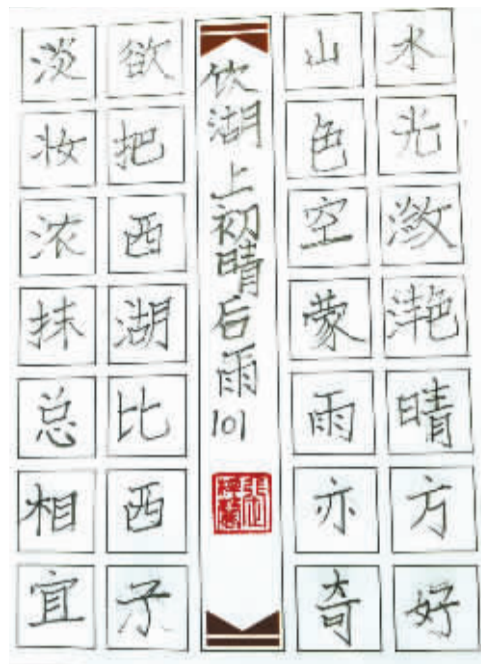 水光潋滟晴方好
山色空蒙雨亦奇
饮湖上初晴后雨101
欲把西湖比西子
淡妆浓抹总相宜